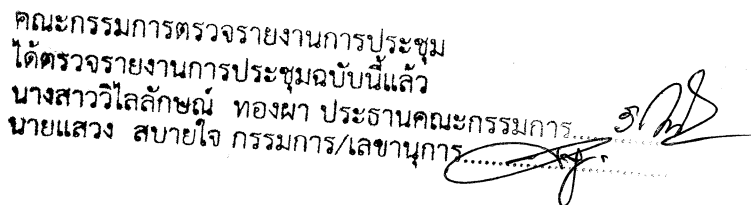 คณะกรรมการตรวจรายงานการประชุม
ได้ตรวจรายงานการประชุมฉบับนี้แล้ว
นางสาววิไลลักษณ์ ทองผา ประธานคณะกรรมการ
นายแสวง สบายใจ กรรมการ/เลขานุการ